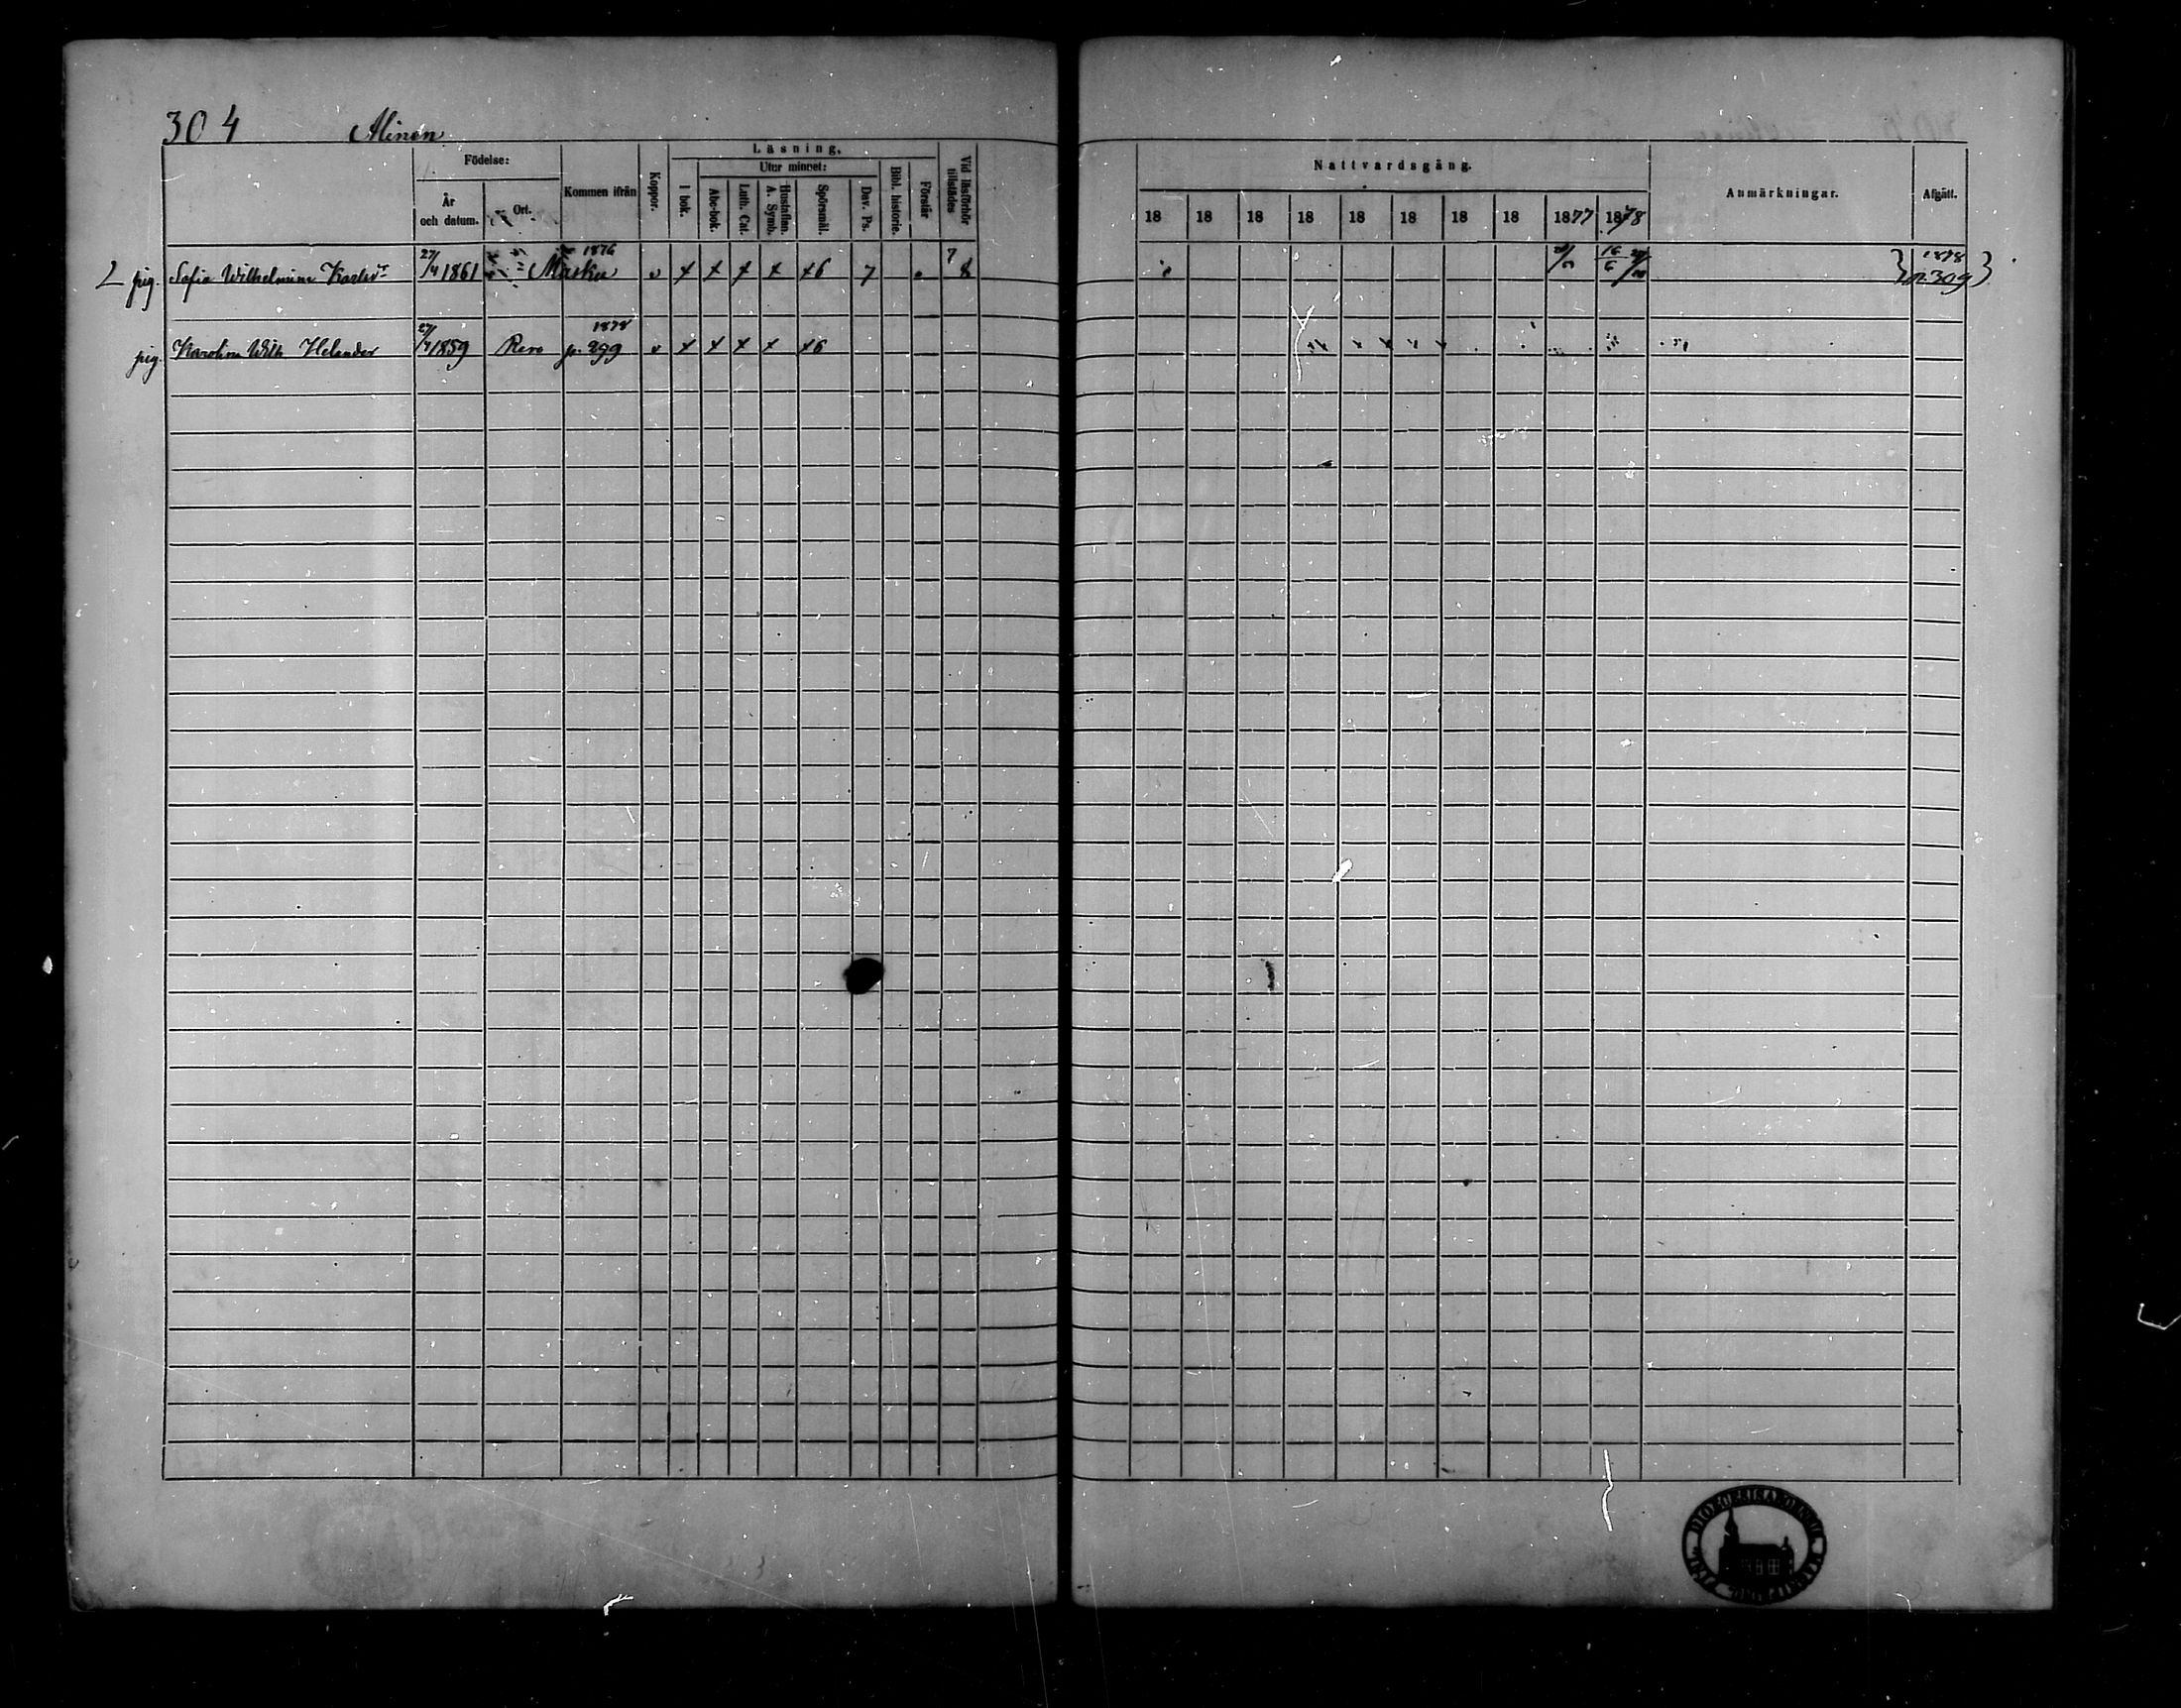 304 Alinen
Läsning.
Födelse: Utur minnet:
År och datum. Ort. Kommen ifrån Koppor. I bok. Abc-bok. Luth. Cat. Hustaflan. A. Symb. Spörsmål. Dav. Ps. Bibl. historie. Förstår Vid läsförhör tillstädes
Nattvardsgång. Anmärkningar. Afgått.
18 18 18 18 18 18 18 18 1877 1878
1876 7 1878
pig. Sofia Wilhelmina Karlsdr 27/4 1861 Masku v x x x x x6 7 8 16/6 p. 309
1878
pig. Karolina Wilh Helander 27/4 1859 Reso p. 299 v x x x x x6